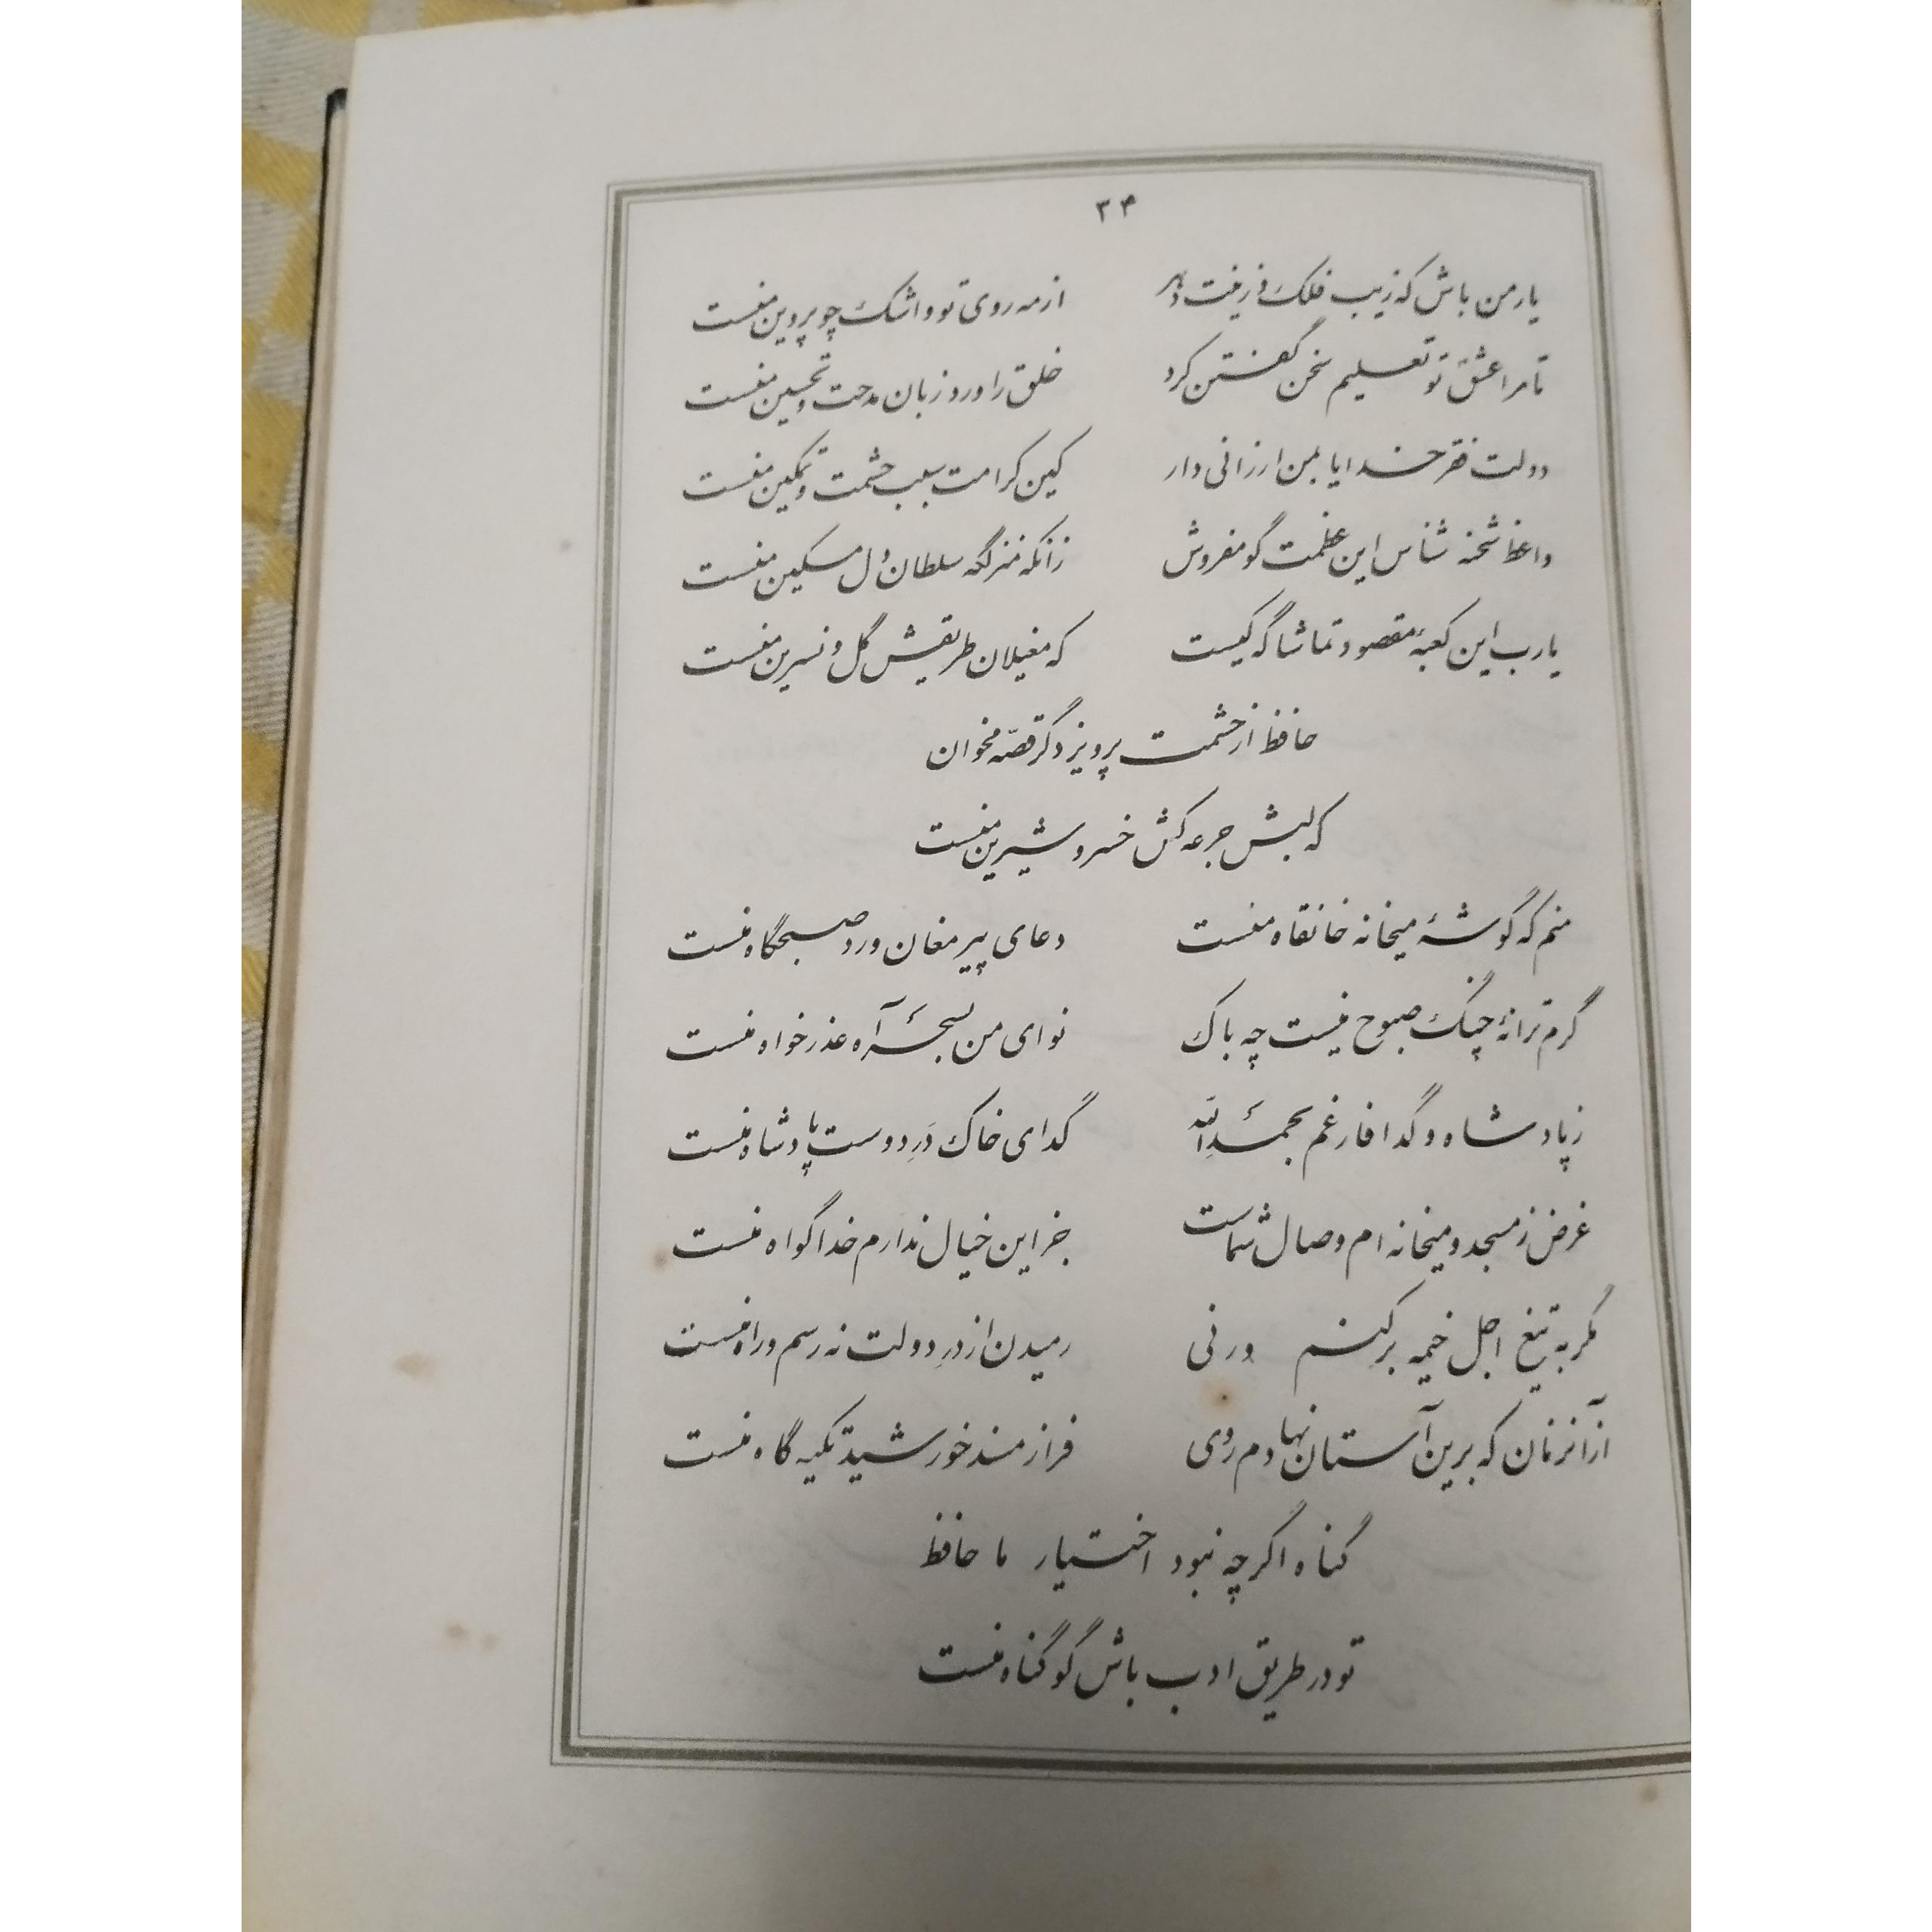 ۳۴
یار من باش که زیب فلک و زینت دهر از مه روی تو و اشک چو پروین منست
تا مرا عشق تو تعلیم سخن گفتن کرد خلق را ورد زبان مدحت و تحسین منست
دولت فقر خدایا بمن ارزانی دار کین کرامت سبب حشمت و تمکین منست
واعظ شحنه شناس این عظمت گو مفروش زانکه منزلگه سلطان دل مسکین منست
یا رب این کعبهٔ مقصود تماشاگه کیست که مغیلان طریقش گل و نسرین منست
حافظ از حشمت پرویز دگر قصّه مخوان
که لبش جرعه کش خسرو شیرین منست
منم که گوشهٔ میخانه خانقاه منست دعای پیر مغان ورد صبحگاه منست
گرم ترانهٔ چنگ صبوح نیست چه باک نوای من بسحر آه عذرخواه منست
ز پادشاه و گدا فارغم بحمدِالله گدای خاک دَرِ دوست پادشاه منست
غرض ز مسجد و میخانه ام وصال شماست جز این خیال ندارم خدا گواه منست
مگر به تیغ اجل خیمه برکنم ورنی رمیدن از درِ دولت نه رسم و راه منست
از آنزمان که برین آستان نهادم روی فراز مسند خورشید تکیه گاه منست
گناه اگرچه نبود اختیار ما حافظ
تو در طریق ادب باش گو گناه منست